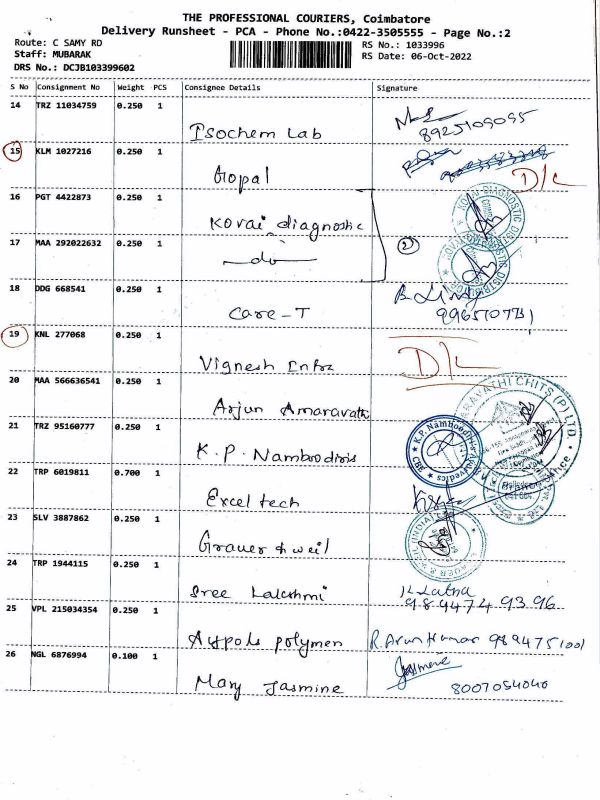 THE PROFESSIONAL COURIERS, Coimbatore
Delivery Runsheet - PCA - Phone No.:0422-3505555 - Page No.:2
Route: C SAMY RD
Staff: MUBARAK
DRS No.: DCJB103399602
RS No.: 1033996
RS Date: 06-Oct-2022
S No Consignment No Weight PCS Consignee Details Signature
14 TRZ 11034759 0.250 1
Isochem Lab 8925109055
15 KLM 1027216 0.250 1
Gopal D/L
16 PGT 4422873 0.250 1
Kovai diagnostic
17 MAA 292022632 0.250 1 2
do
18 DDG 668541 0.250 1
Care-T
19 KNL 277068 0.250 1
Vignesh Infra D/L
20 MAA 566636541 0.250 1
Arjun Amaravathi
21 TRZ 95160777 0.250 1
K.P. Namboodiris
22 TRP 6019811 0.700 1
Excel tech
23 SLV 3887862 0.250 1
Grauer & weil
24 TRP 1944115 0.250 1
Sree Lakshmi K. Latha
98947 49396
25 VPL 215034354 0.250 1
Aspols polymen R. Arun Kumar 9894751001
26 NGL 6876994 0.100 1
Mary Jasmine Jasmine
8007054040